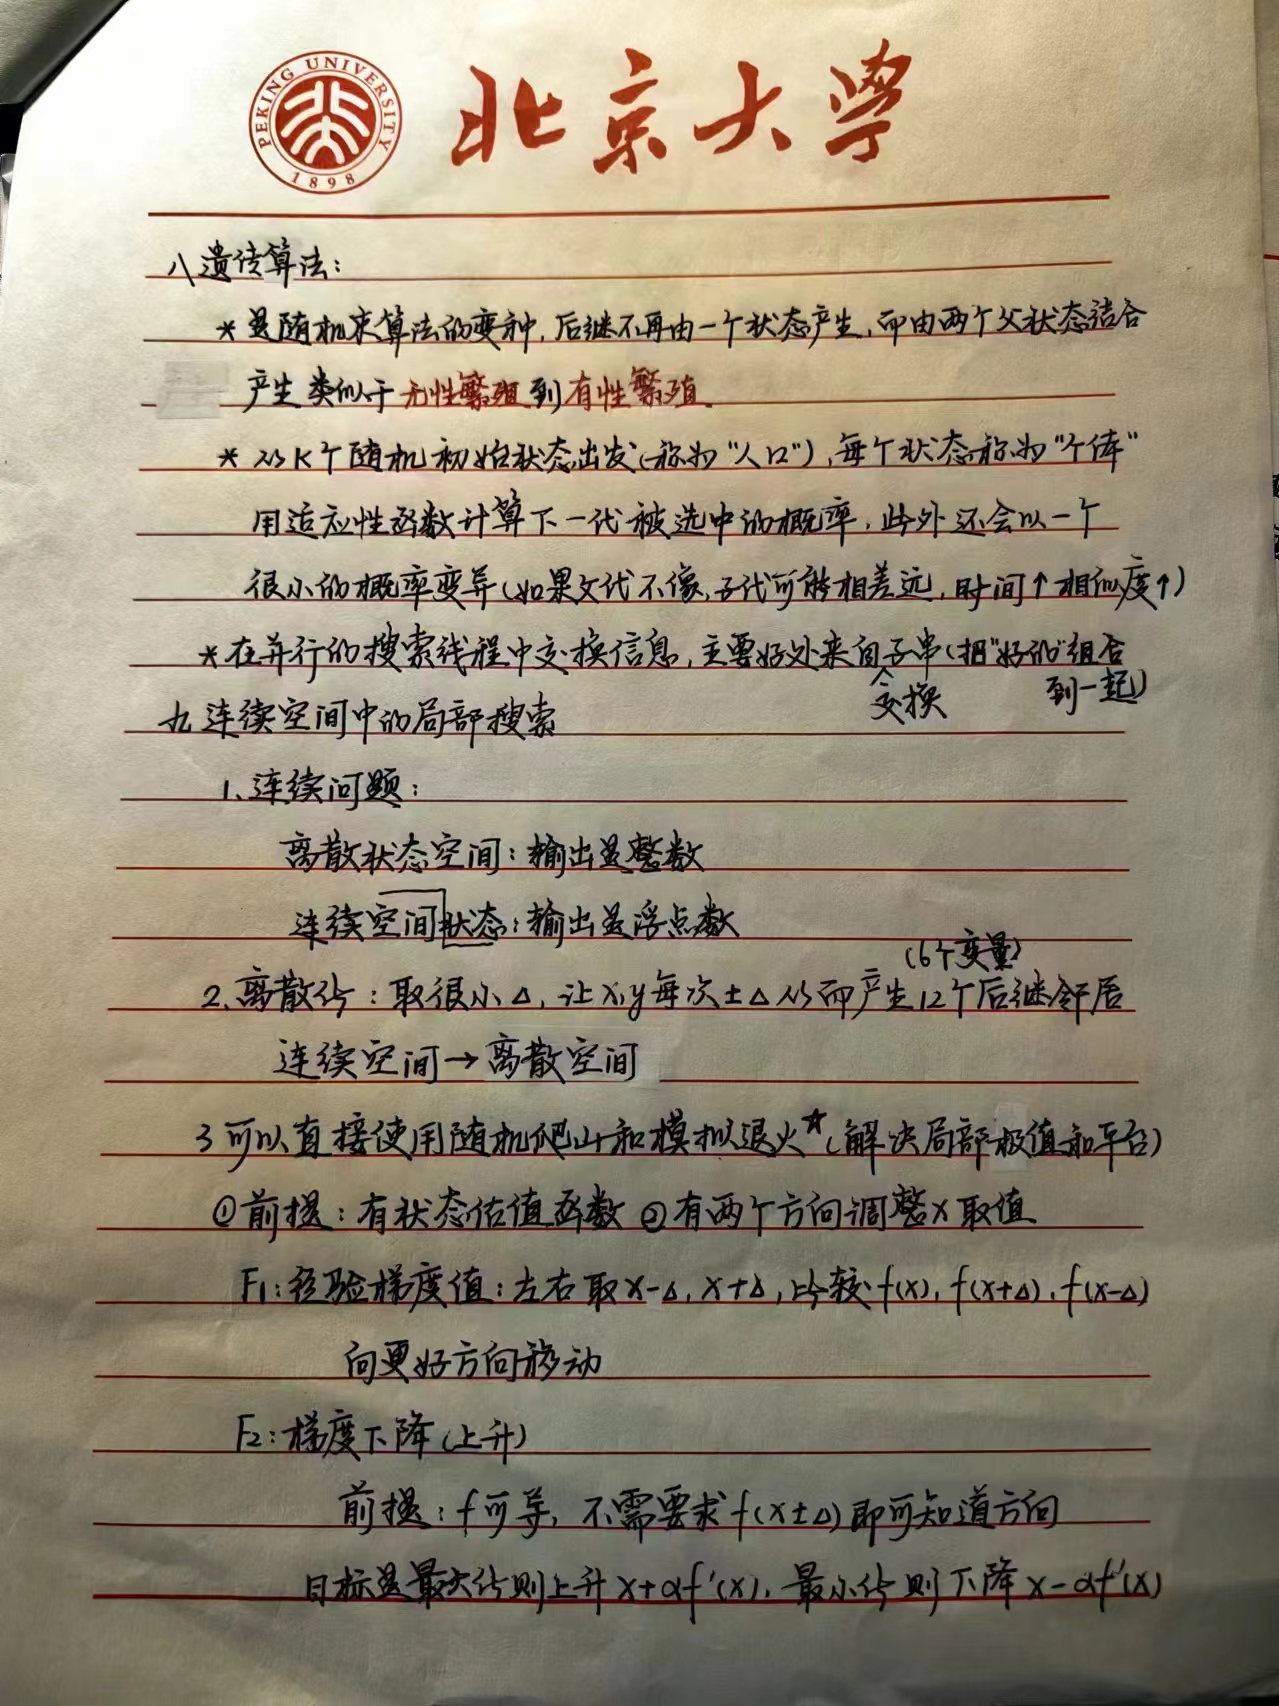 PEKING UNIVERSITY
1898
北京大学
八 遗传算法：
* 是随机束算法的变种，后继不再由一个状态产生，而由两个父状态结合
产生 类似于无性繁殖到有性繁殖
* 从K个随机初始状态出发（称为“人口”），每个状态称为“个体”
用适应性函数计算下一代被选中的概率，此外还会以一个
很小的概率变异（如果父代不像，子代可能相差远，时间↑相似度↑）
* 在并行的搜索线程中交换信息，主要好处来自子串（把“好的”组合
交换 到一起）
九 连续空间中的局部搜索
1、连续问题：
离散状态空间：输出是整数
连续空间状态：输出是浮点数
（6个变量）
2、离散化：取很小△，让x,y每次±△从而产生12个后继邻居
连续空间→离散空间
3 可以直接使用随机爬山和模拟退火☆（解决局部极值和平台）
①前提：有状态估值函数 ②有两个方向调整x取值
F1：经验梯度值：左右取x-△, x+△，比较f(x), f(x+△), f(x-△)
向更好方向移动
F2：梯度下降（上升）
前提：f可导，不需要求f(x±△)即可知道方向
目标是最大化则上升x+αf'(x)，最小化则下降x-αf'(x)